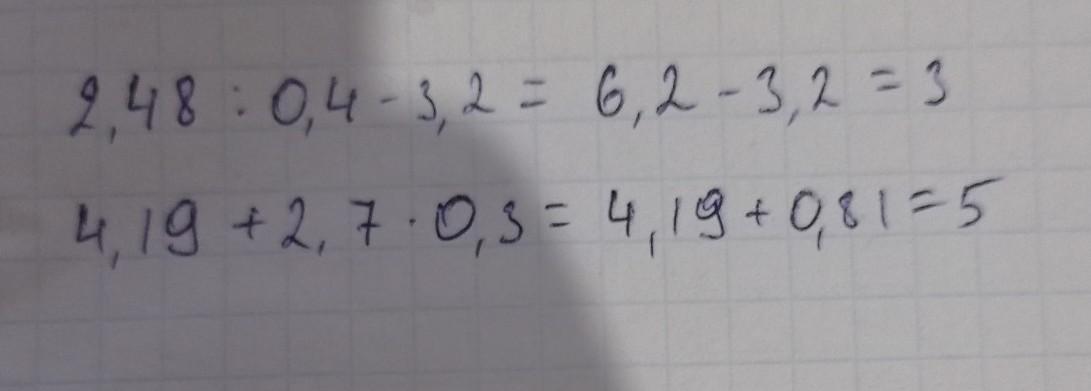 2,48 : 0,4 - 3,2 = 6,2 - 3,2 = 3
4,19 + 2,7 · 0,3 = 4,19 + 0,81 = 5